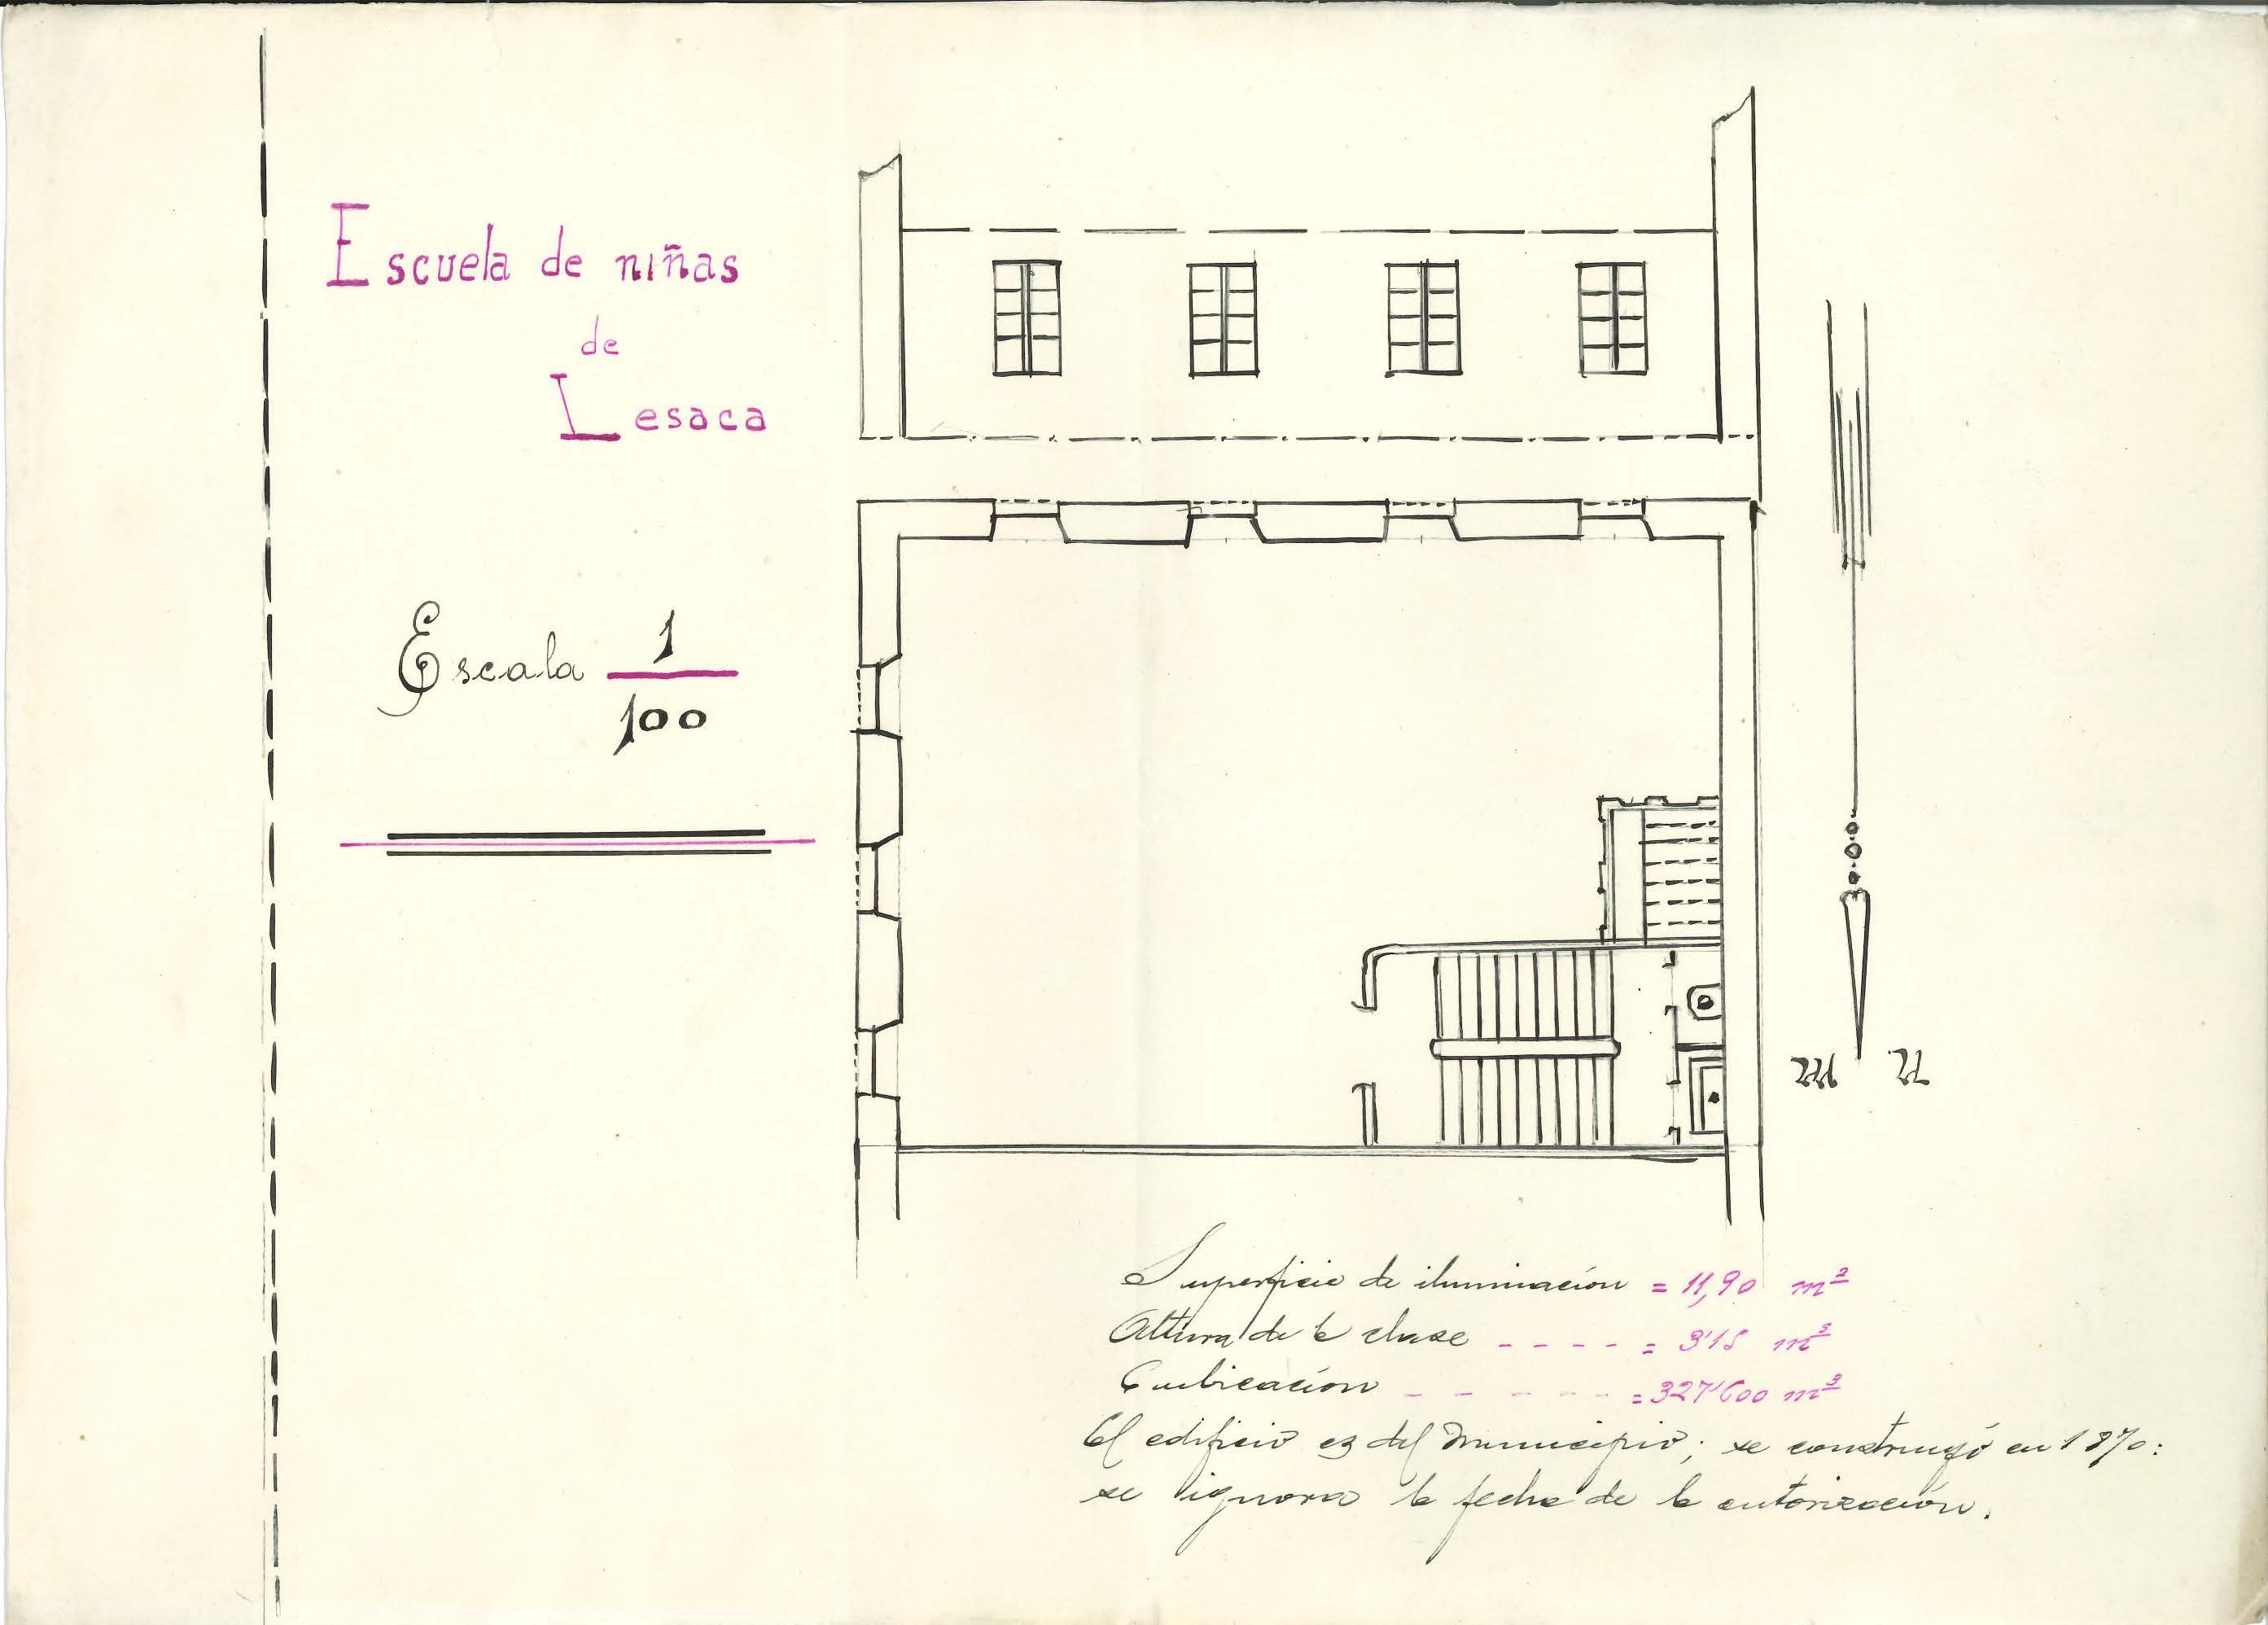 Escuela de niñas
de
Lesaca
Escala 1/100
N M
Superficie de iluminación = 11,90 m²
Altura de la clase - - - - = 3'15 mˢ
Cubicación - - - - - - = 327'600 m³
El edificio es del Municipio; se construyó en 1870:
se ignora la fecha de la autorización.